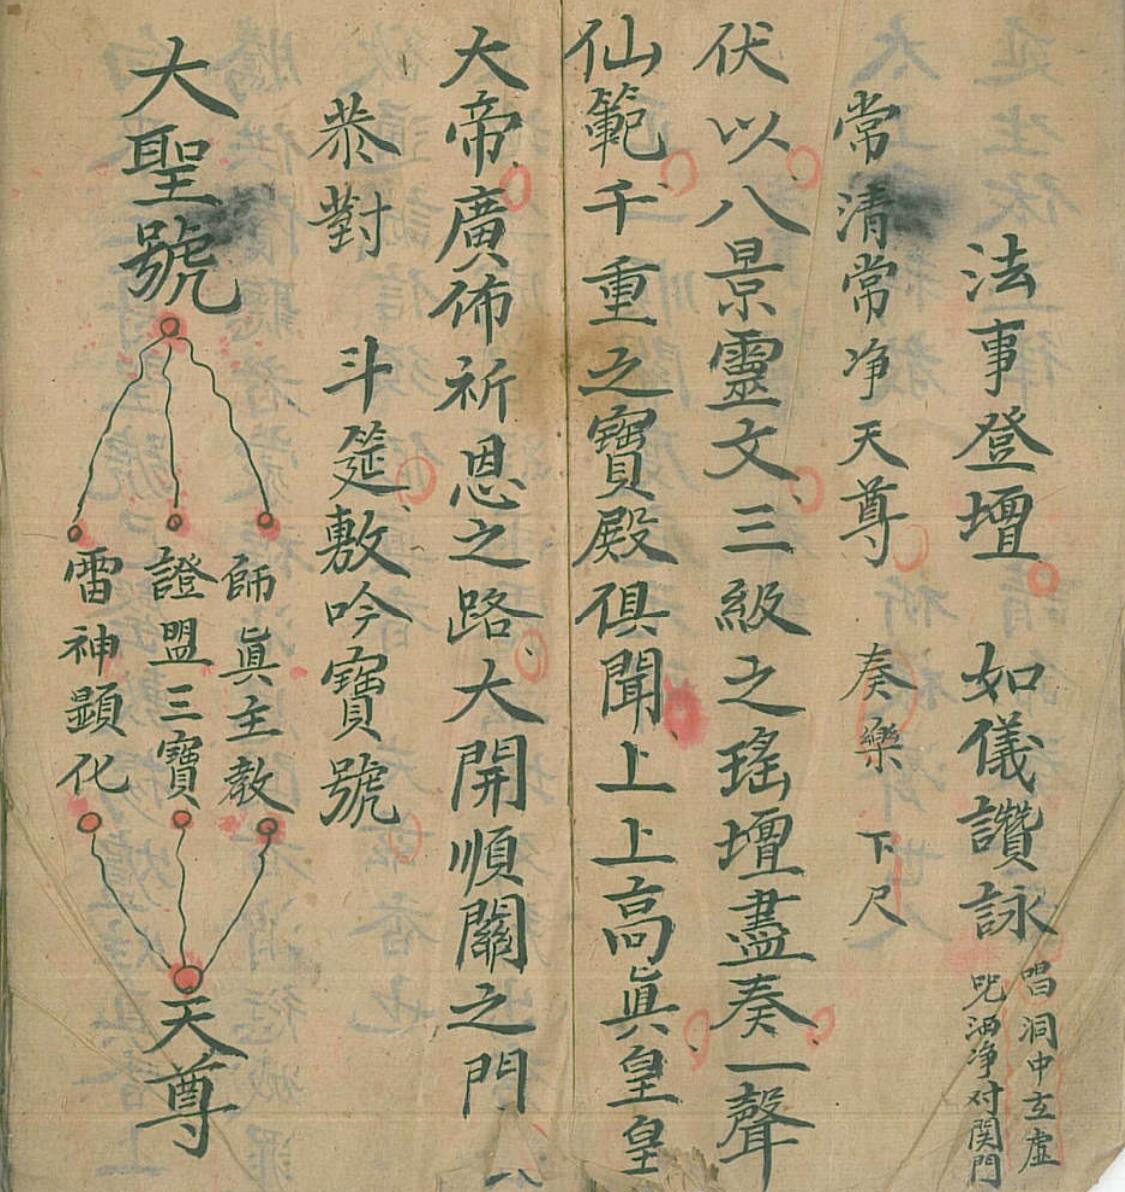 法事登壇 如儀讚詠 唱洞中玄虛
咒洒净对関門
常清常净天尊 奏樂 下尺
伏以八景靈文三級之瑤壇盡奏一聲
仙範千重之寶殿俱聞上上高眞皇皇
大帝廣佈祈恩之路大開順關之門
恭對 斗筵敷吟寶號
大聖號
師眞主教
證盟三寶
雷神顕化
天尊
八